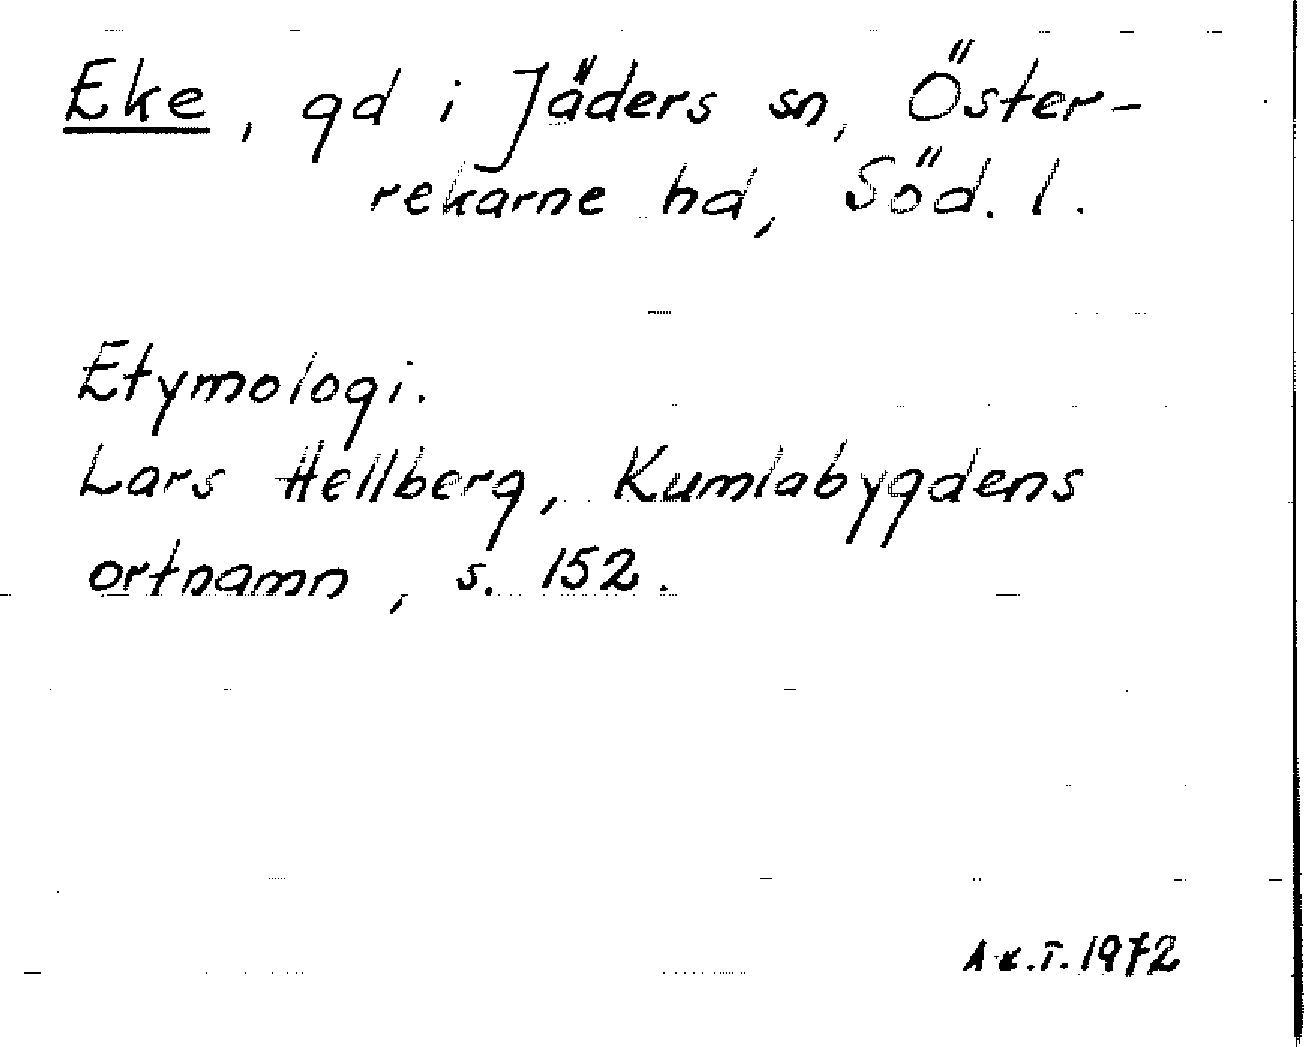 Eke, gd i Jäders sn, Öster-
rekarne hd, Söd. l.
Etymologi.
Lars Hellberg, Kumlabygdens
ortnamn, s. 152.
A.K.T. 1972